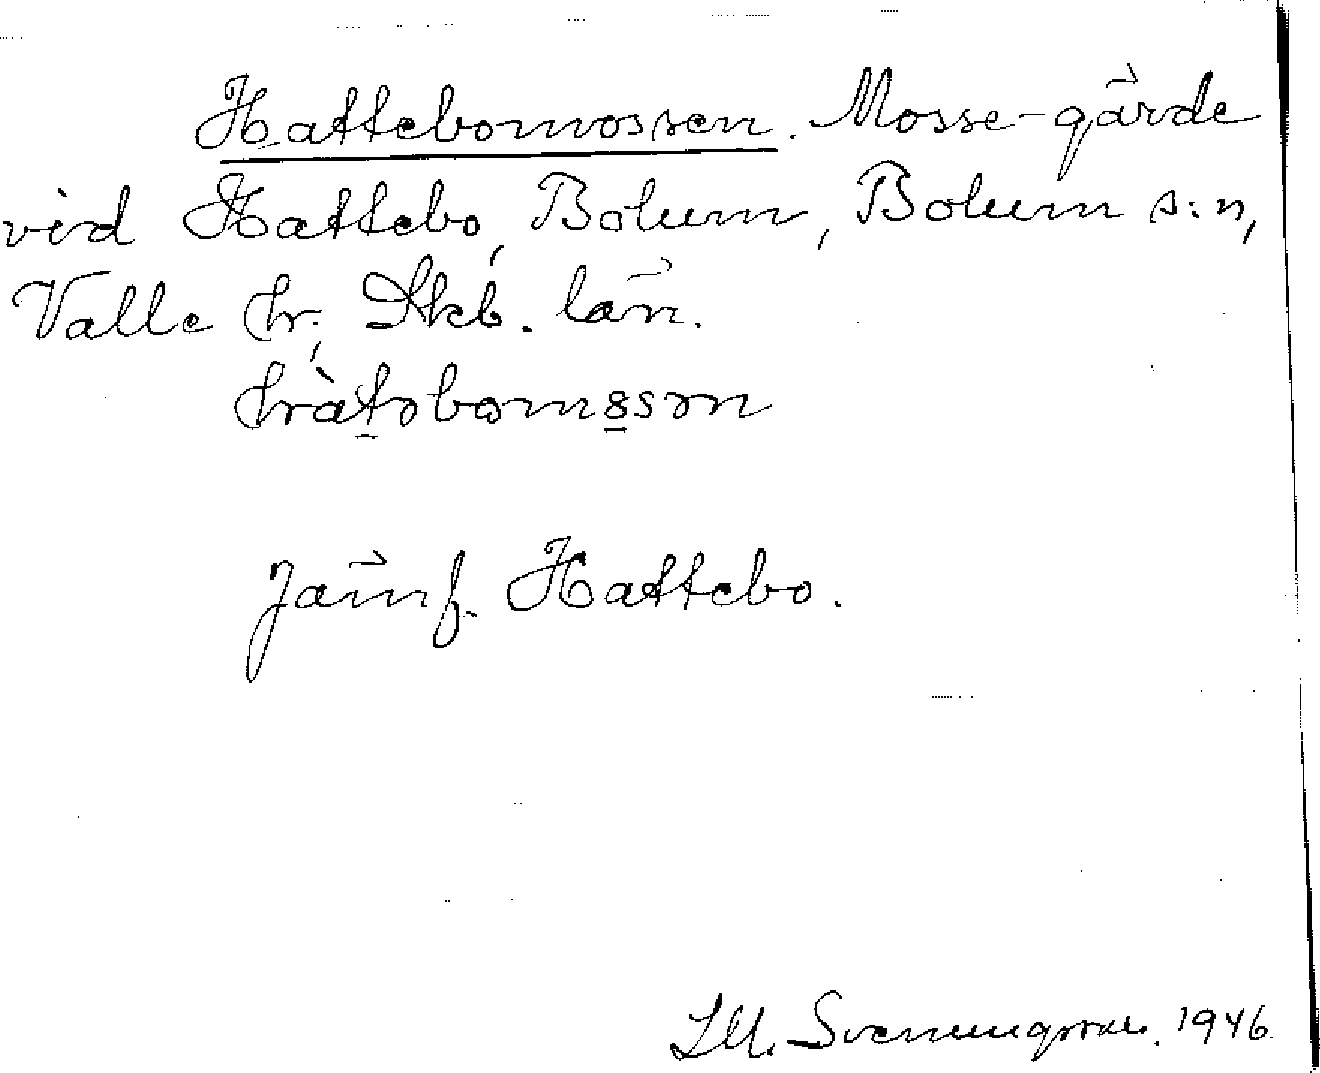 Hattebomossen. Mosse-gärde
vid Hattebo, Bolum, Bolum s:n,
Valle hr, Skb. län.
Jämf. Hattebo.
Svenungsson. 1946